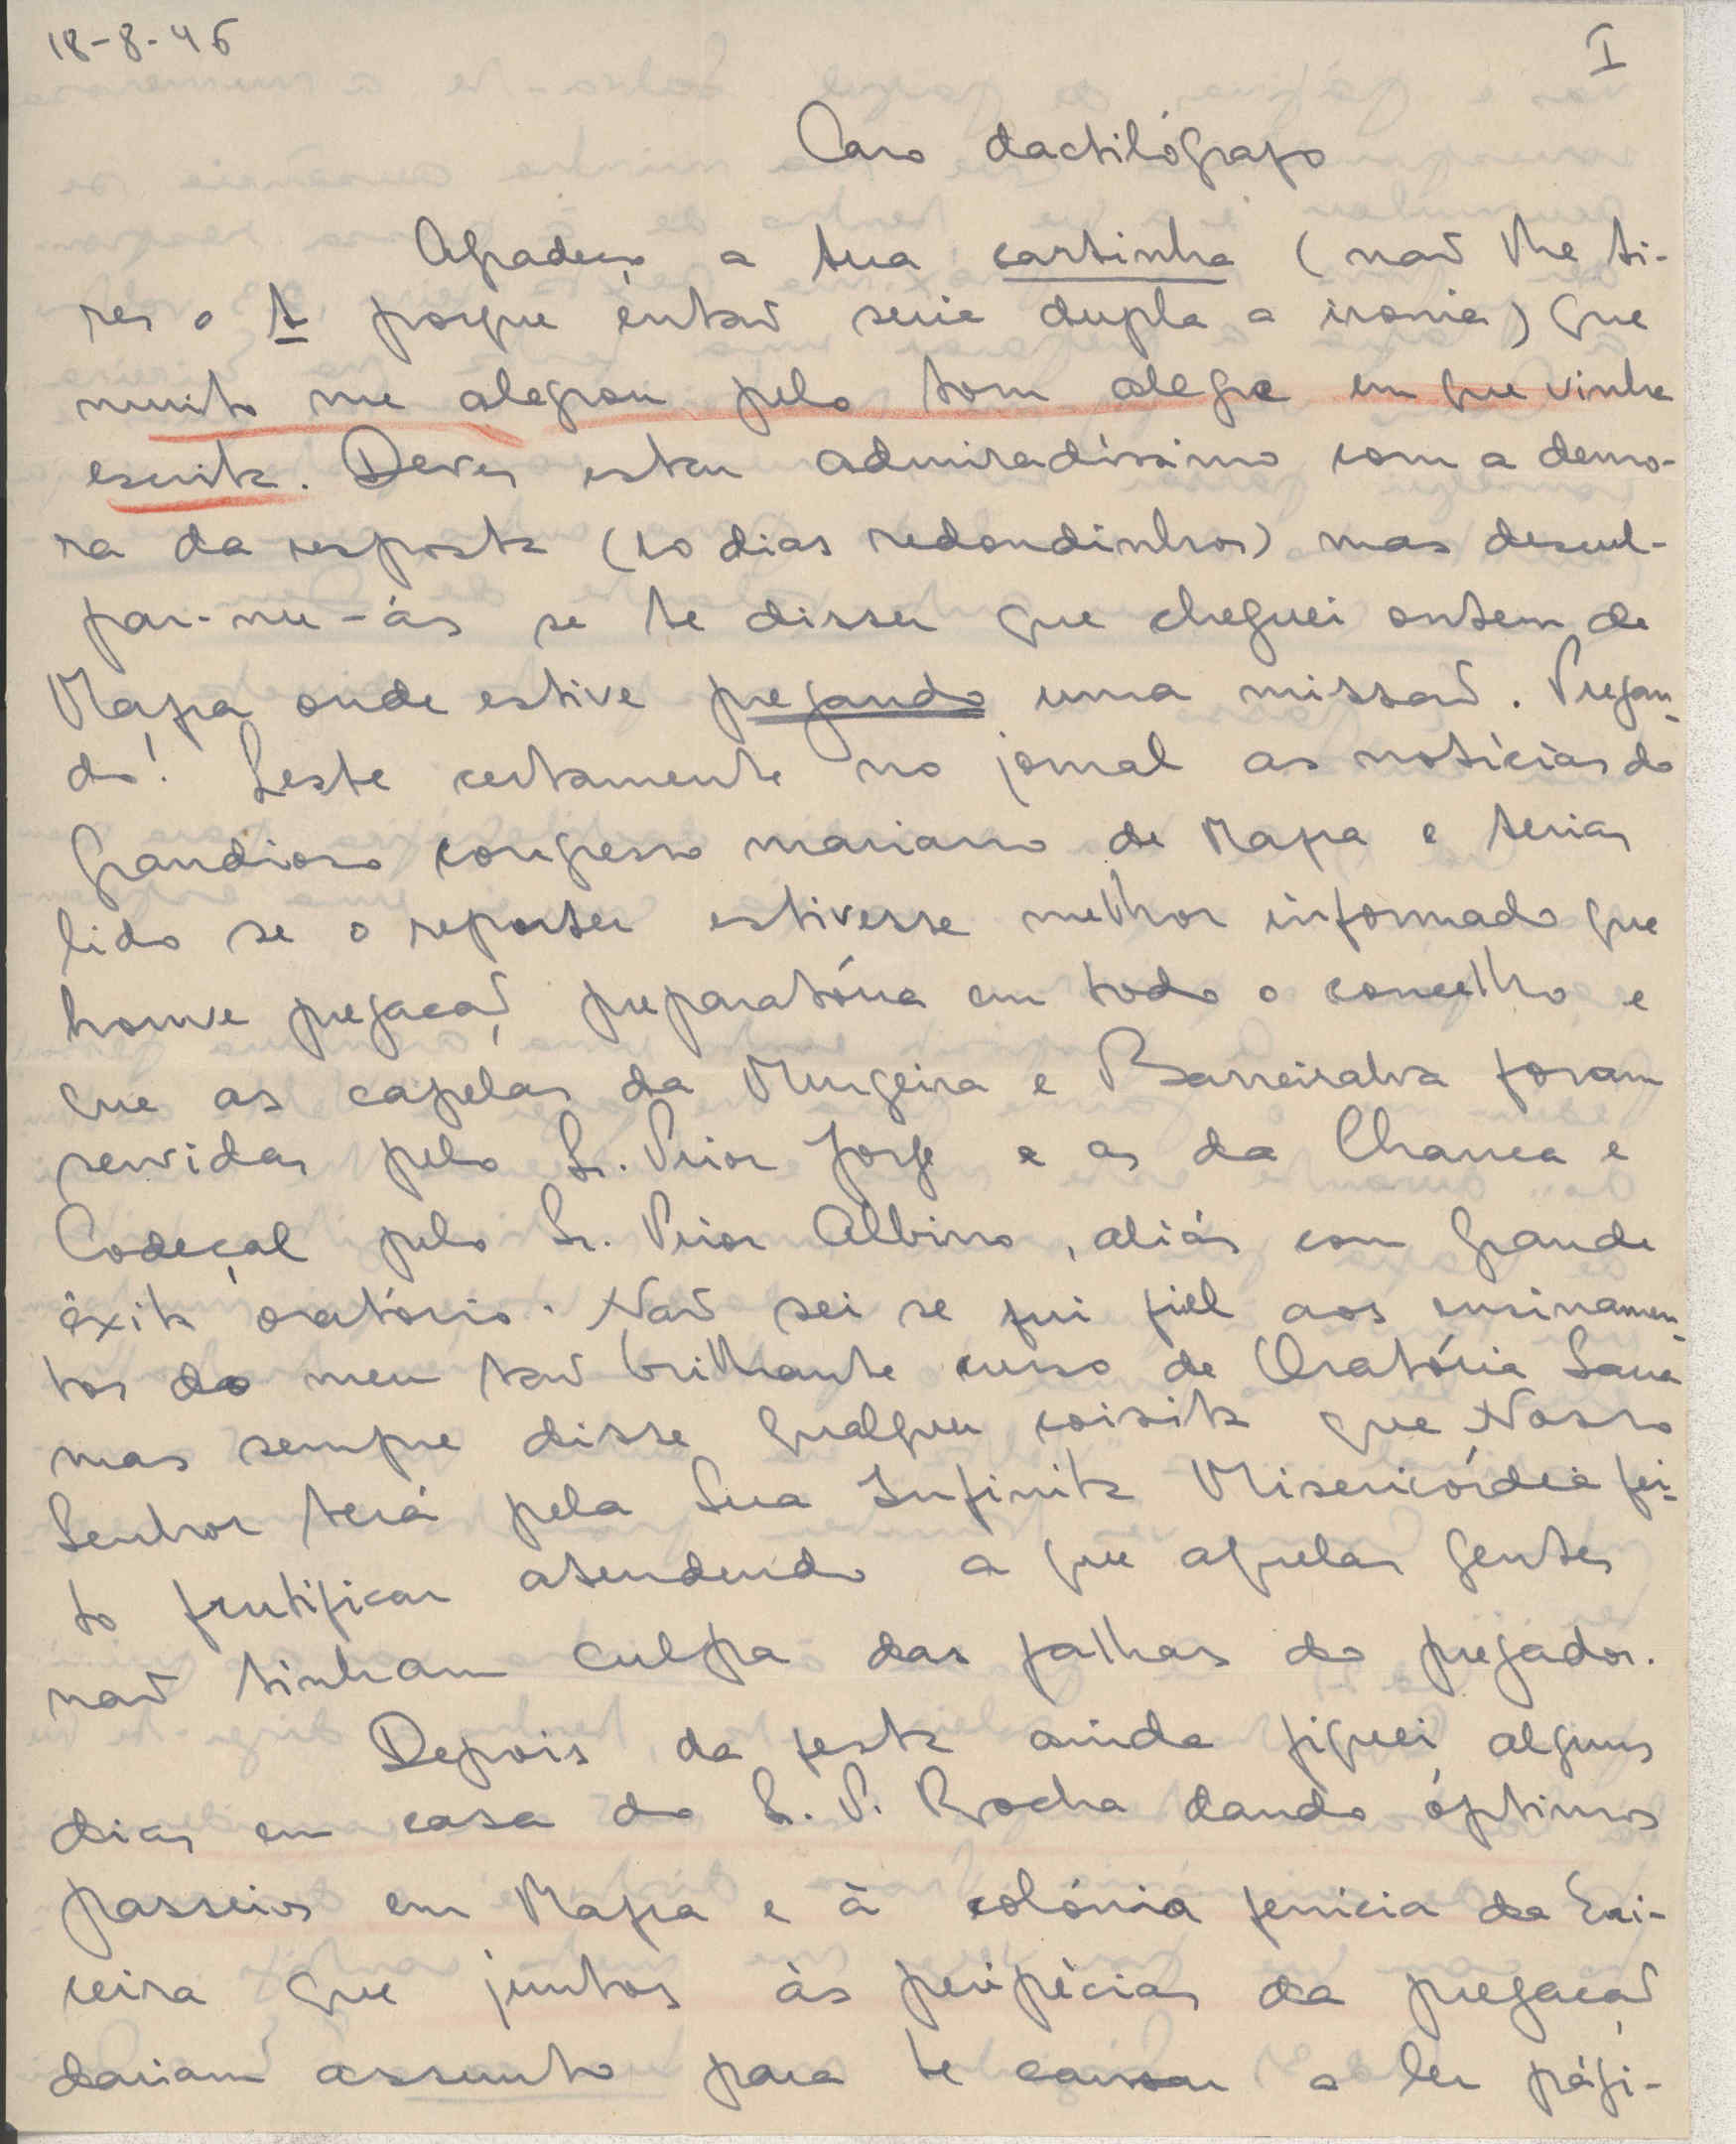 18-8-46
I
Caro dactilógrafo
Agradeço a tua cartinha (não lhe ti-
res o t porque então seria dupla a ironia) que
muito me alegrou pelo tom alegre em que vinha
escrita. Deves estar admiradíssimo com a demo-
ra da resposta (10 dias redondinhos) mas descul-
par-me-ás se te disser que cheguei ontem de
Mafra onde estive pregando uma missão. Pregan-
do! Leste certamente no jornal as notícias do
grandioso congresso mariano de Mafra e terias
lido se o reporter estivesse melhor informado que
houve pregação preparatória em todo o concelho e
que as capelas da Murgeira e Barreiralva foram
servidas pelo Sr. Prior Jorge e as da Chanca e
Codeçal pelo Sr. Prior Albino, aliás com grande
êxito oratório. Não sei se fui fiel aos ensinamen-
tos do meu tão brilhante curso de Oratória Sacra
mas sempre disse qualquer coisita que Nosso
Senhor terá pela Sua Infinita Misericórdia fei-
to frutificar atendendo a que aquelas gentes
não tinham culpa das falhas do pregador.
Depois da festa ainda fiquei alguns
dias em casa do S. P. Rocha dando óptimos
passeios em Mafra e à colónia fenicia da Eri-
ceira que juntos às peripécias da pregação
dariam assunto para te cansar a ler pági-